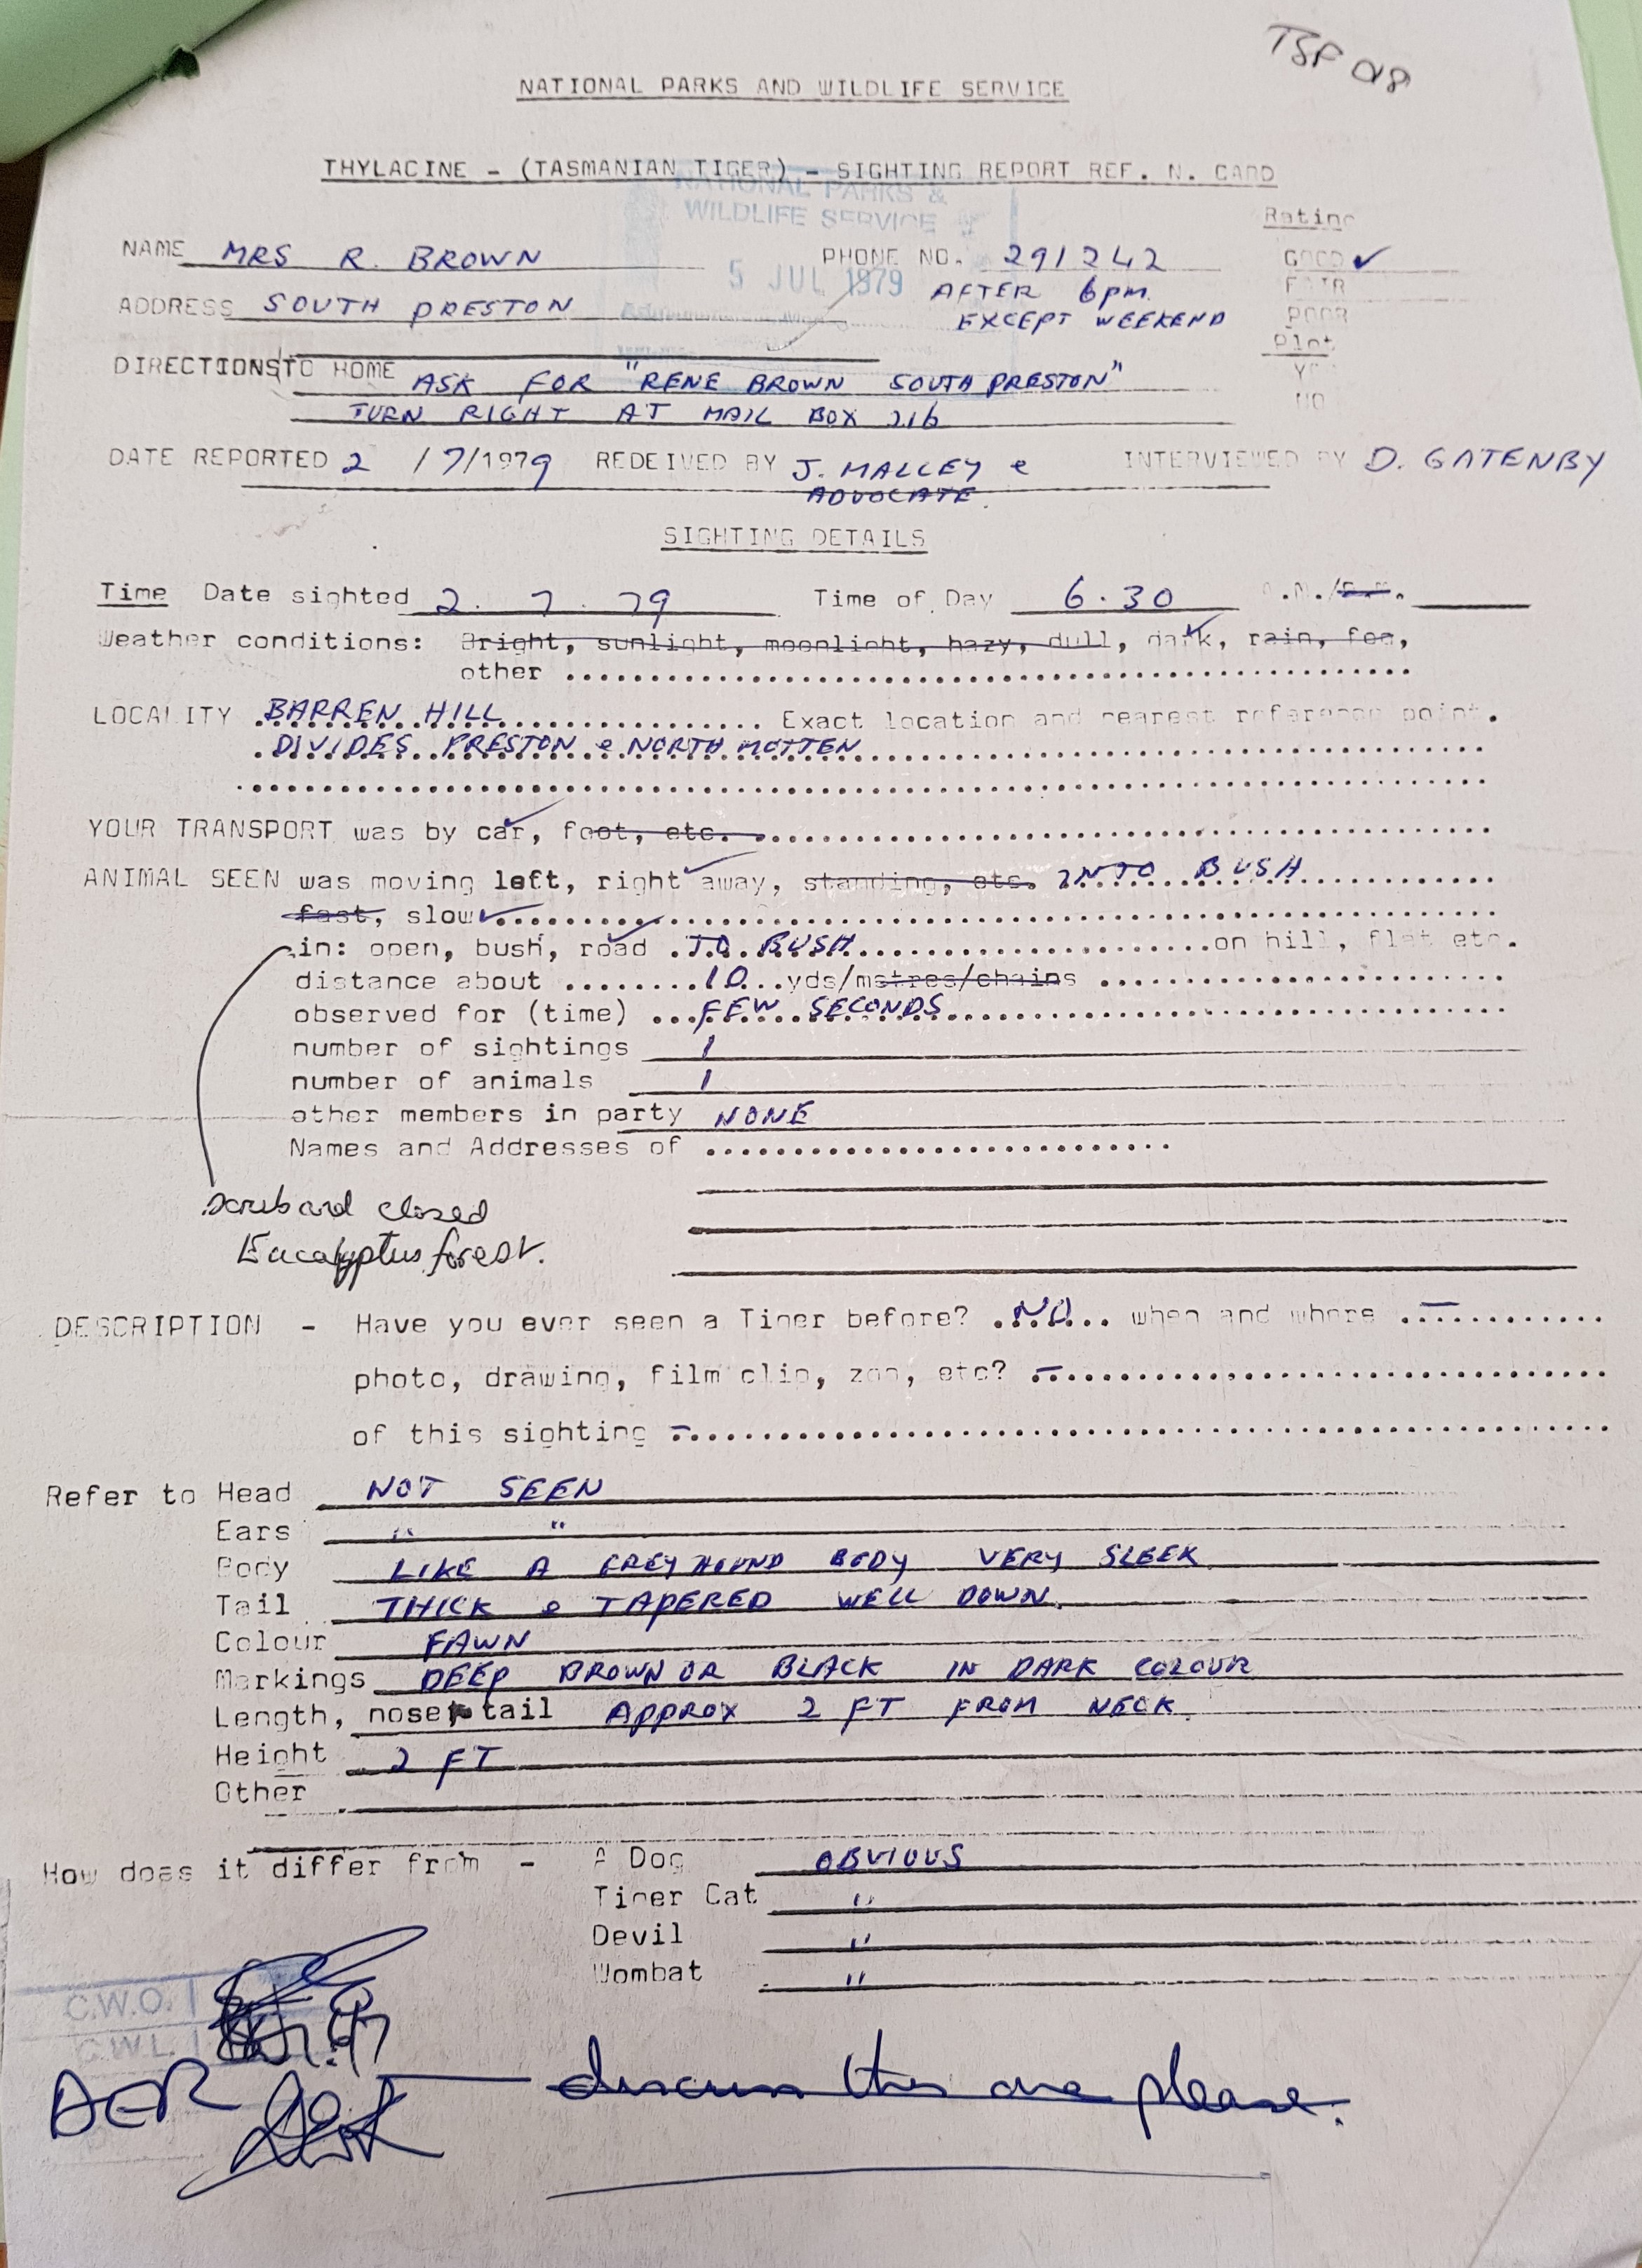 TSF 018
NATIONAL PARKS AND WILDLIFE SERVICE
THYLACINE - (TASMANIAN TIGER) - SIGHTING REPORT REF. N. CARD
NATIONAL PARKS &
WILDLIFE SERVICE
5 JUL 1979
Rating
NAME MRS R. BROWN PHONE NO. 291242 GOOD ✓
AFTER 6pm. FAIR
ADDRESS SOUTH PRESTON EXCEPT WEEKEND POOR
Plot
DIRECTIONS TO HOME ASK FOR "RENE BROWN SOUTH PRESTON" YES
TURN RIGHT AT MAIL BOX 216 NO
DATE REPORTED 2 /7/1979 REDEIVED BY J. MALLEY & INTERVIEWED BY D. GATENBY
ADVOCATE.
SIGHTING DETAILS
Time Date sighted 2. 7. 79 Time of Day 6.30 A.M./P.M.
Weather conditions: Bright, sunlight, moonlight, hazy, dull, dark, rain, fog,
other
LOCALITY BARREN HILL Exact location and nearest reference point.
DIVIDES PRESTON & NORTH MOTTEN
YOUR TRANSPORT was by car, foot, etc.
ANIMAL SEEN was moving left, right away, standing, etc. INTO BUSH
fast, slow
in: open, bush, road TO BUSH on hill, flat etc.
distance about 10 yds/metres/chains
observed for (time) FEW SECONDS
number of sightings 1
number of animals 1
other members in party NONE
Names and Addresses of
scrub and closed
Eucalyptus forest.
DESCRIPTION - Have you ever seen a Tiger before? NO when and where —
photo, drawing, film clip, zoo, etc? —
of this sighting —
Refer to Head NOT SEEN
Ears " "
Body LIKE A GREYHOUND BODY VERY SLEEK
Tail THICK & TAPERED WELL DOWN.
Colour FAWN
Markings DEEP BROWN OR BLACK IN DARK COLOUR
Length, nose tail APPROX 2 FT FROM NECK.
Height 2 FT
Other
How does it differ from - A Dog OBVIOUS
Tiger Cat "
Devil "
Wombat "
C.W.O.
C.W.L.
DER — discuss this one please.